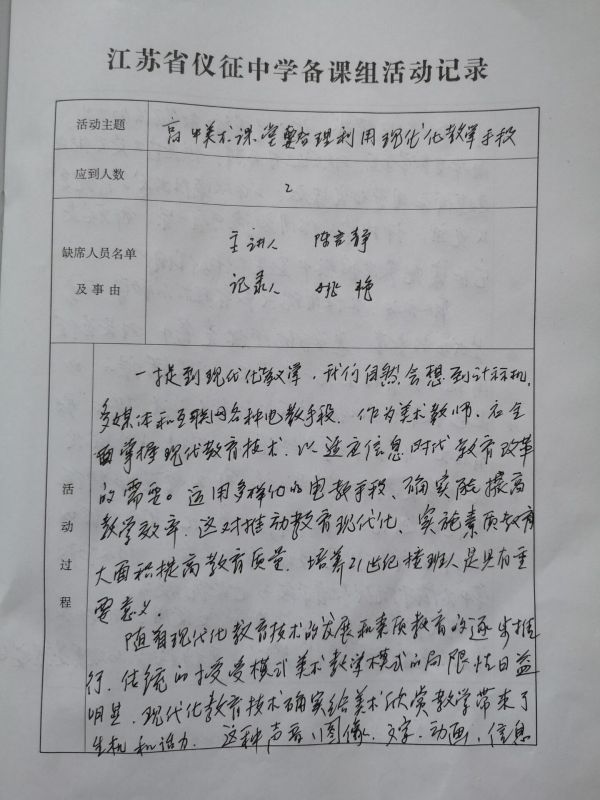 江苏省仪征中学备课组活动记录
活动主题
高中美术课堂要合理利用现代化教学手段
应到人数
2
缺席人员名单
及事由
主讲人 陈言静
记录人 姚艳
活动过程
一提到现代化教学，我们自然会想到计算机，
多媒体和互联网各种电教手段．作为美术教师．应全
面掌握现代教育技术．以适应信息时代教育改革
的需要。运用多样化的电教手段、确实能提高
教学效率．这对推动教育现代化、实施素质教育
大面积提高教育质量．培养21世纪接班人是具有重
要意义．
随着现代化教育技术的发展和素质教育的逐步推
行．传统的接受模式美术教学模式的局限性日益
明显．现代化教育技术确实给美术欣赏教学带来了
生机和活力．这种声音、图像、文字、动画、信息